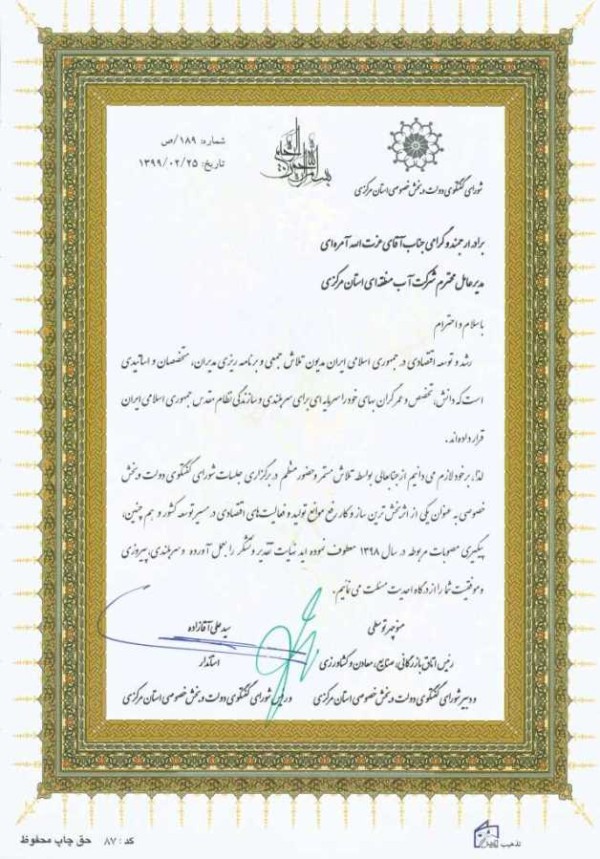 بسم الله الرحمن الرحیم
شماره: ۱۸۹/ص
تاریخ: ۱۳۹۹/۰۲/۲۵
شورای گفتگوی دولت و بخش خصوصی استان مرکزی
برادر ارجمند و گرامی جناب آقای عزت الله آمره ای
مدیر عامل محترم شرکت آب منطقه ای استان مرکزی
با سلام و احترام
رشد و توسعه اقتصادی در جمهوری اسلامی ایران مدیون تلاش جمعی و برنامه ریزی مدیران، متخصصان و اساتیدی
است که دانش، تخصص و عمر گران بهای خود را سرمایه ای برای سربلندی و سازندگی نظام مقدس جمهوری اسلامی ایران
قرار داده اند.
لذا، بر خود لازم می دانیم از جنابعالی بواسطه تلاش مستمر و حضور منظم در برگزاری جلسات شورای گفتگوی دولت و بخش
خصوصی به عنوان یکی از اثربخش ترین ساز و کار رفع موانع تولید و فعالیت های اقتصادی در مسیر توسعه کشور و هم چنین،
پیگیری مصوبات مربوطه در سال ۱۳۹۸ معطوف نموده اید نهایت تقدیر و تشکر را بعمل آورده و سربلندی، پیروزی
و موفقیت شما را از درگاه احدیت مسئلت می نمائیم.
منوچهر توسطی
رئیس اتاق بازرگانی، صنایع، معادن و کشاورزی
و دبیر شورای گفتگوی دولت و بخش خصوصی استان مرکزی
سید علی آقازاده
استاندار
و رئیس شورای گفتگوی دولت و بخش خصوصی استان مرکزی
کد: ۸۷ حق چاپ محفوظ
تذهیب